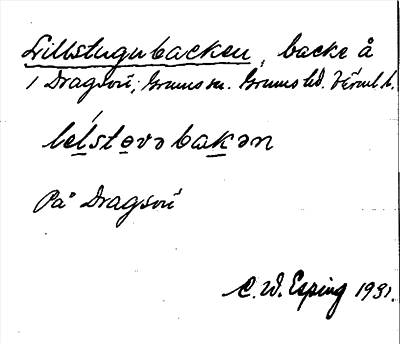 Lillstugubacken, backe å
i Dragsön, Grums sn. Grums hd. Värml. l.
lelstəvəbakən
På Dragsön
C. W. Esping 1931.